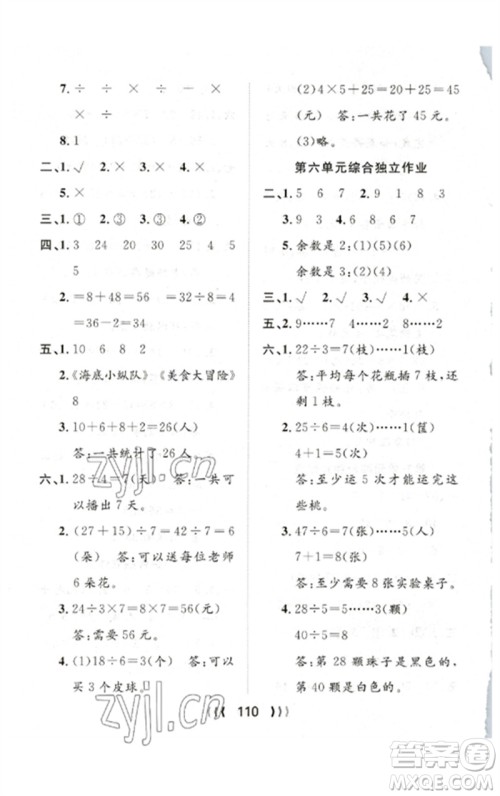 7. ÷ ÷ × ÷ −
× ÷
8. 1
二、1. √ 2. × 3. × 4. √
5. ×
三、1. ① 2. ③ 3. ③ 4. ③
四、1. 3 24 20 30 25 4 5
5
2. =8+48=56 =32÷8=4
=36-2=34
五、1. 10 6 8 2
2.《海底小纵队》《美食大冒险》
8
3. 10+6+8+2=26(人)
答:一共统计了 26 人。
六、1. 28÷4=7(天) 答:一共可
以播出 7 天。
2. (27+15)÷7=42÷7=6
(朵) 答:可以送每位老师
6 朵花。
3. 24÷3×7=8×7=56(元)
答:需要 56 元。
4. (1)18÷6=3(个) 答:可以
买 3 个皮球。
(2)4×5+25=20+25=45
(元) 答:一共花了 45 元。
(3)略。
第六单元综合独立作业
二、1. 5 6 7 2. 9 1 8 3
3. 9 3 4. 8 6 8 7
5. 余数是 2:(1)(5)(6)
余数是 3:(2)(4)
三、1. √ 2. √ 3. √ 4. ×
五、2. 9……7 9……4
六、1. 22÷3=7(枝)……1(枝)
答:平均每个花瓶插 7 枝,还
剩 1 枝。
2. 25÷6=4(次)……1(筐)
4+1=5(次)
答:至少运 5 次才能运完这
些桃。
3. 47÷6=7(张)……5(人)
7+1=8(张)
答:至少需要 8 张实验桌子。
4. 28÷5=5……3(颗)
40÷5=8
答:第 28 颗珠子是黑色的,
第 40 颗是白色的。
110
zyjl.cn
zyjl.cn
答案圈
MXQE.COM